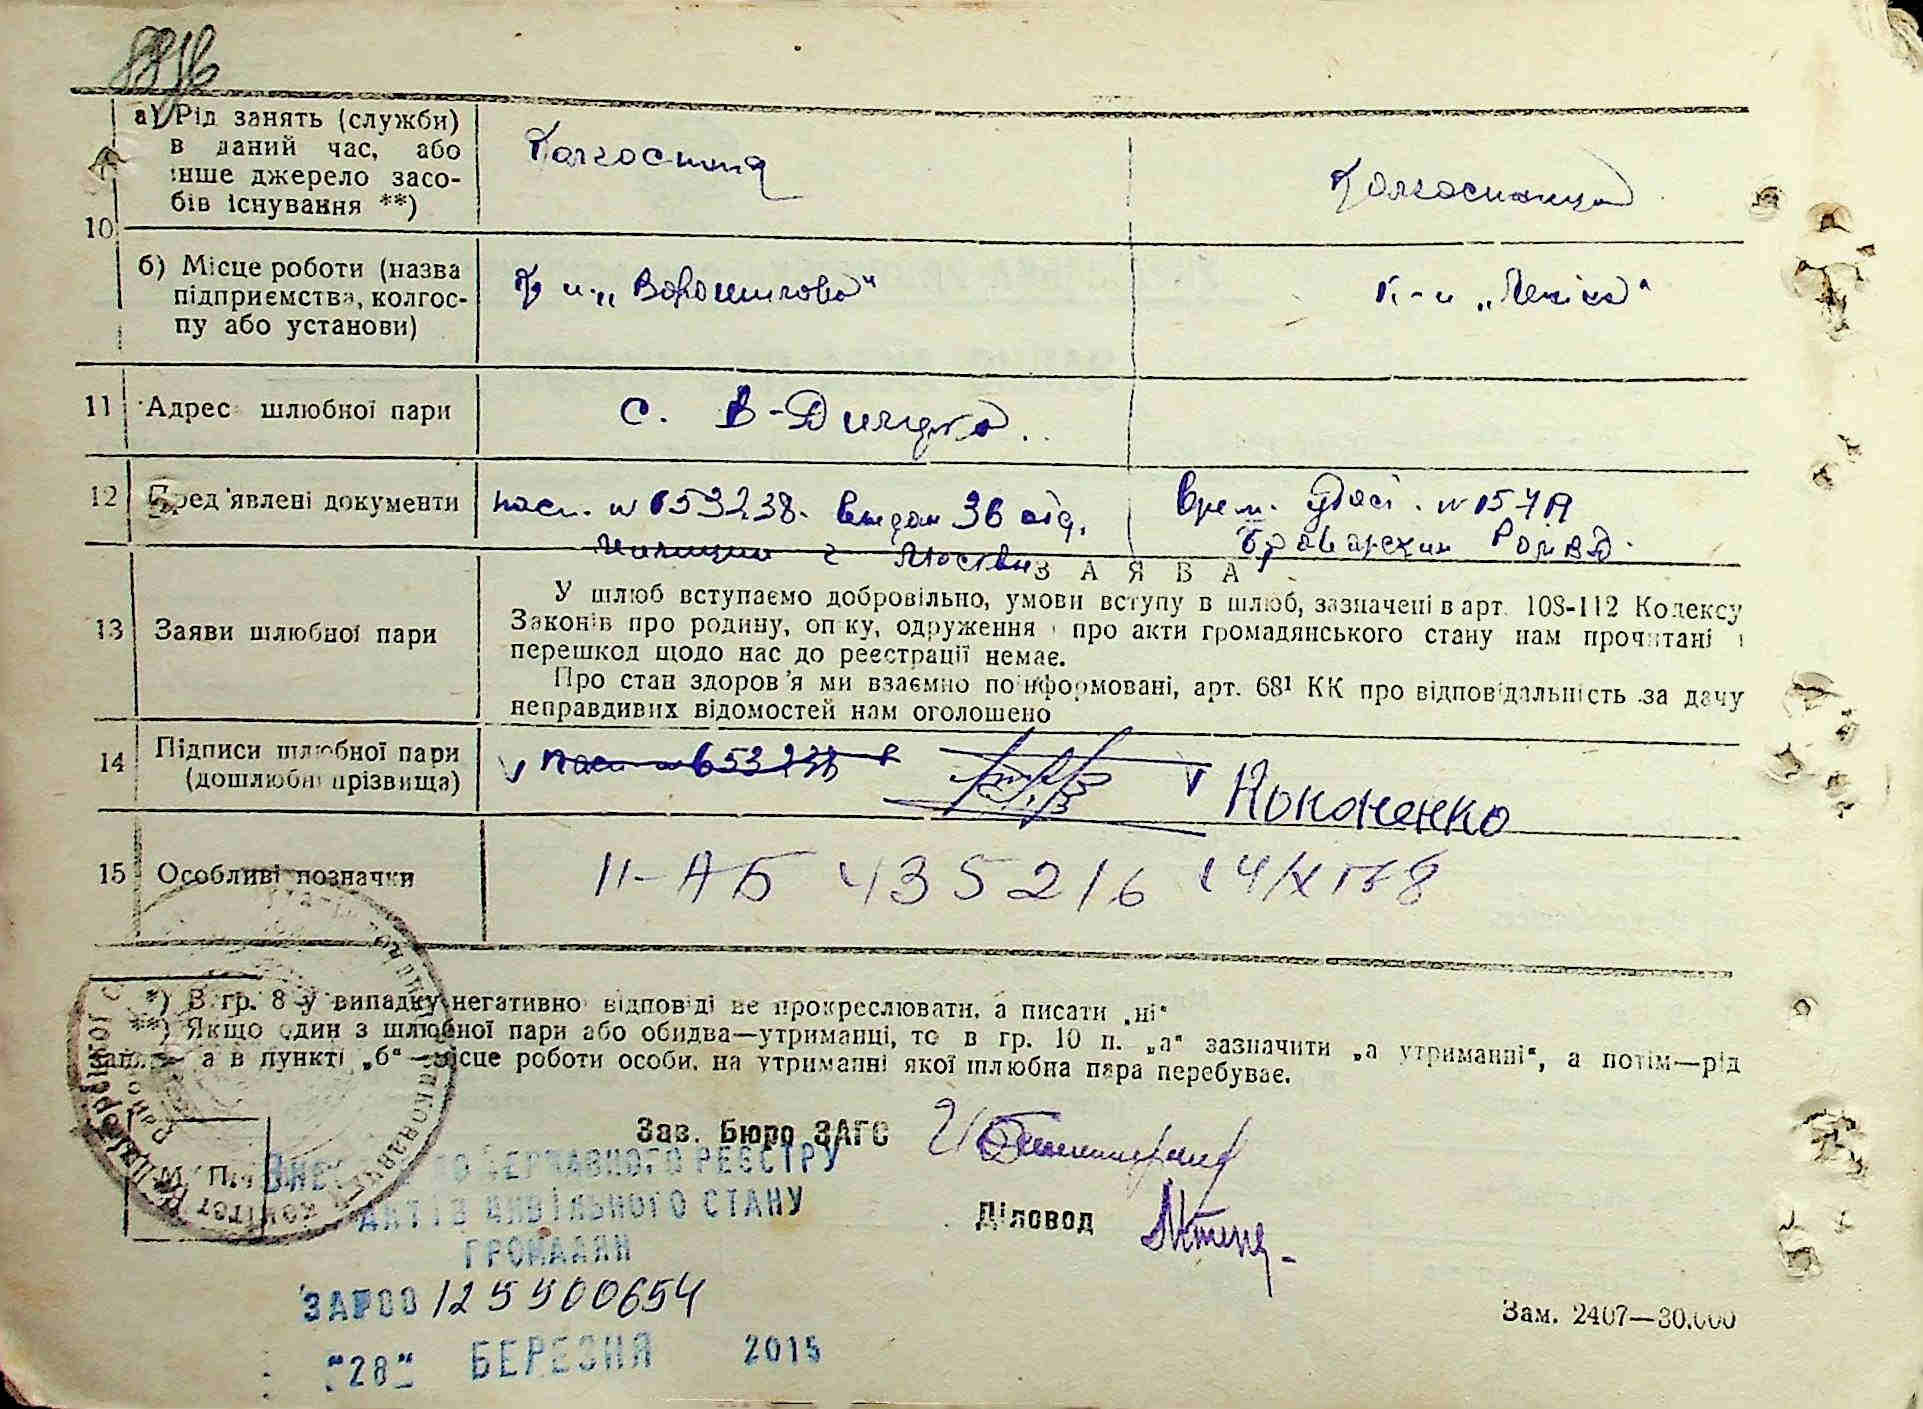 а) Рід занять (служби)
в даний час, або
інше джерело засо-
бів існування **)
Колгоспник
Колгоспниця
10
б) Місце роботи (назва
підприємства, колгос-
пу або установи)
К и. „Ворошилова"
К-и „Леніна"
11 Адрес шлюбної пари
с. В-Димерка
12 Пред'явлені документи
пасп. № 653238. видан 36 від.
милиции г Москви
Врем. удост. № 157А
Броварским РОМВД.
13 Заяви шлюбної пари
ЗАЯВА
У шлюб вступаємо добровільно, умови вступу в шлюб, зазначені в арт 108-112 Кодексу
Законів про родину, опіку, одруження і про акти громадянського стану нам прочитані і
перешкод щодо нас до реєстрації немає.
Про стан здоров'я ми взаємно поінформовані, арт. 68¹ КК про відповідальність за дачу
неправдивих відомостей нам оголошено
14 Підписи шлюбної пари
(дошлюбні прізвища)
v пасп № 653238 v Кононенко
15 Особливі позначки
II-АБ 435216
*) В гр. 8 у випадку негативної відповіді не прокреслювати, а писати „ні"
**) Якщо один з шлюбної пари або обидва—утриманці, то в гр. 10 п. „а" зазначити „а утриманні", а потім—рід
а в пункті „б"—місце роботи особи, на утриманні якої шлюбна пара перебуває.
Зав. Бюро ЗАГС
М. П.
Діловод
ВНЕСЕНО ДО ДЕРЖАВНОГО РЕЄСТРУ
АКТІВ ЦИВІЛЬНОГО СТАНУ
ГРОМАДЯН
ЗА №00 125500654
"28" БЕРЕЗНЯ 2015
Зам. 2407—30.000